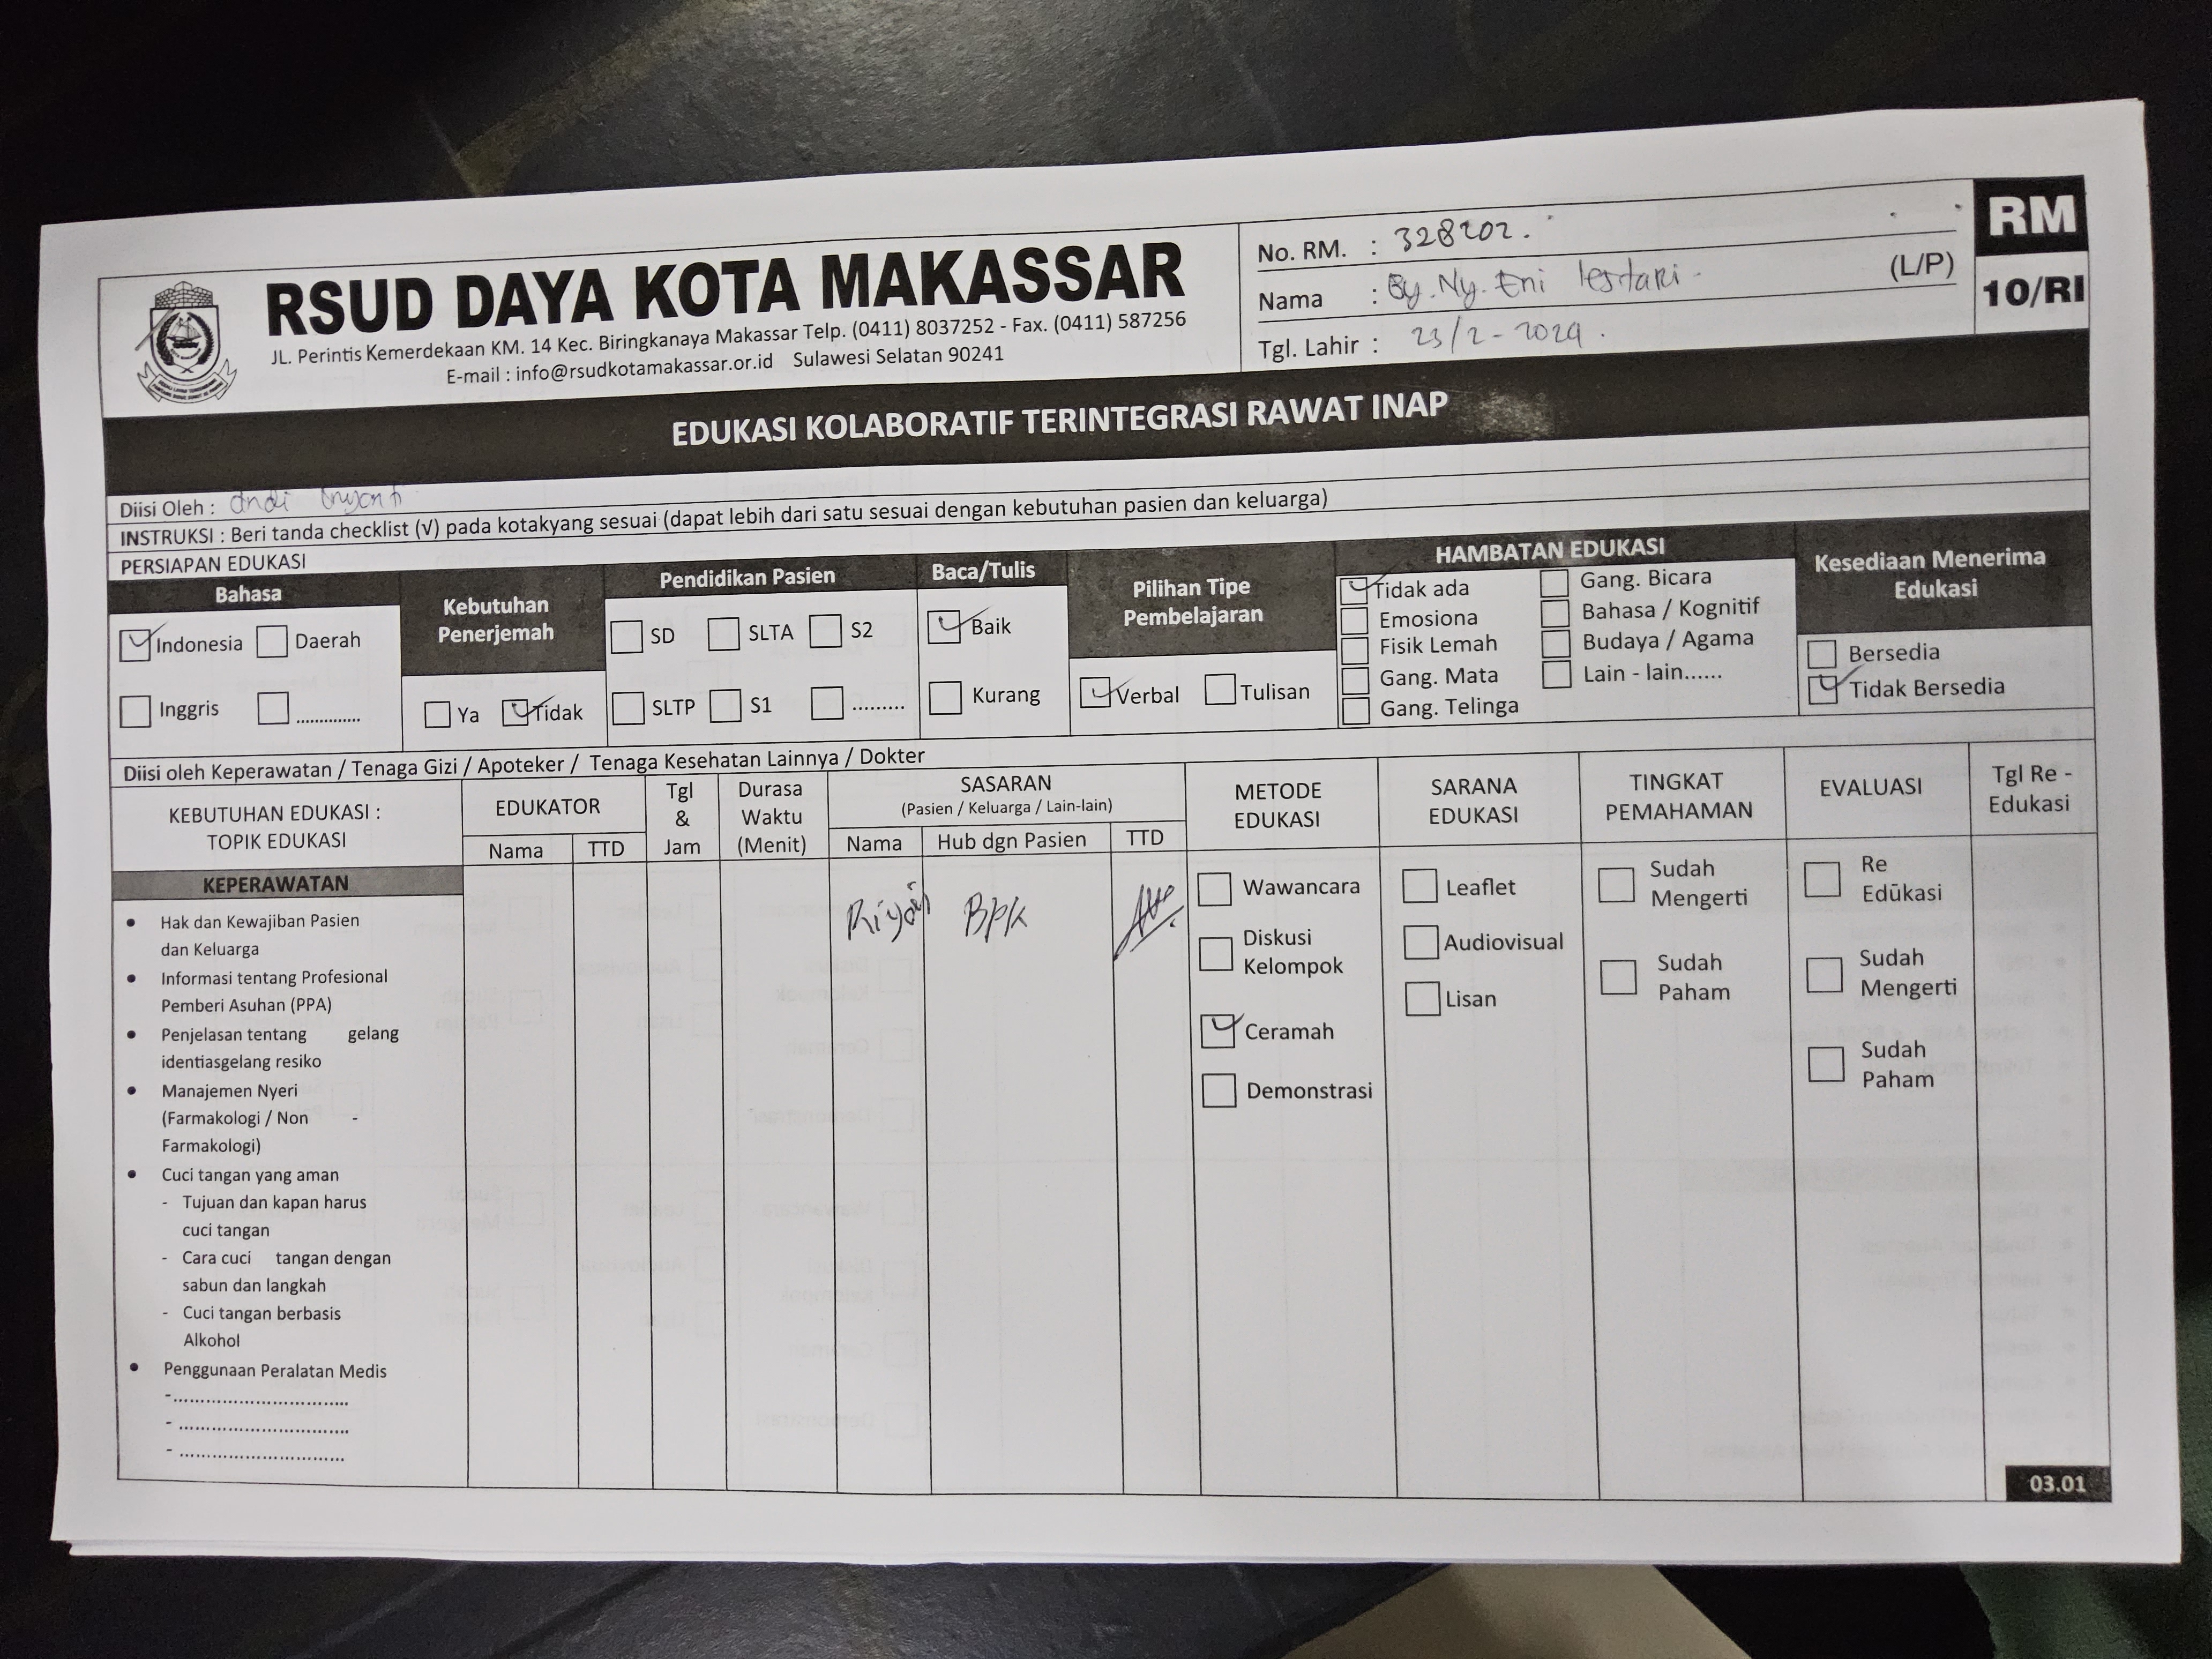 RSUD DAYA KOTA MAKASSAR
JL. Perintis Kemerdekaan KM. 14 Kec. Biringkanaya Makassar Telp. (0411) 8037252 - Fax. (0411) 587256
E-mail : info@rsudkotamakassar.or.id Sulawesi Selatan 90241
No. RM. : 328202.
Nama : By. Ny. Eni lestari - (L/P)
Tgl. Lahir : 23/2-2024.
RM
10/RI
EDUKASI KOLABORATIF TERINTEGRASI RAWAT INAP
Diisi Oleh : Andi
INSTRUKSI : Beri tanda checklist (√) pada kotakyang sesuai (dapat lebih dari satu sesuai dengan kebutuhan pasien dan keluarga)
PERSIAPAN EDUKASI
Bahasa
Indonesia Daerah
Inggris ..............
Kebutuhan
Penerjemah
Ya Tidak
Pendidikan Pasien
SD SLTA S2
SLTP S1 .........
Baca/Tulis
Baik
Kurang
Pilihan Tipe
Pembelajaran
Verbal Tulisan
HAMBATAN EDUKASI
Tidak ada Gang. Bicara
Emosiona Bahasa / Kognitif
Fisik Lemah Budaya / Agama
Gang. Mata Lain - lain......
Gang. Telinga
Kesediaan Menerima
Edukasi
Bersedia
Tidak Bersedia
Diisi oleh Keperawatan / Tenaga Gizi / Apoteker / Tenaga Kesehatan Lainnya / Dokter
KEBUTUHAN EDUKASI :
TOPIK EDUKASI
EDUKATOR
Nama TTD
Tgl
&
Jam
Durasa
Waktu
(Menit)
SASARAN
(Pasien / Keluarga / Lain-lain)
Nama Hub dgn Pasien TTD
METODE
EDUKASI
SARANA
EDUKASI
TINGKAT
PEMAHAMAN
EVALUASI
Tgl Re -
Edukasi
KEPERAWATAN
• Hak dan Kewajiban Pasien
dan Keluarga
• Informasi tentang Profesional
Pemberi Asuhan (PPA)
• Penjelasan tentang gelang
identiasgelang resiko
• Manajemen Nyeri
(Farmakologi / Non -
Farmakologi)
• Cuci tangan yang aman
- Tujuan dan kapan harus
cuci tangan
- Cara cuci tangan dengan
sabun dan langkah
- Cuci tangan berbasis
Alkohol
• Penggunaan Peralatan Medis
-..............................
- .............................
- ............................
BPK
Wawancara
Diskusi
Kelompok
Ceramah
Demonstrasi
Leaflet
Audiovisual
Lisan
Sudah
Mengerti
Sudah
Paham
Re
Edūkasi
Sudah
Mengerti
Sudah
Paham
03.01